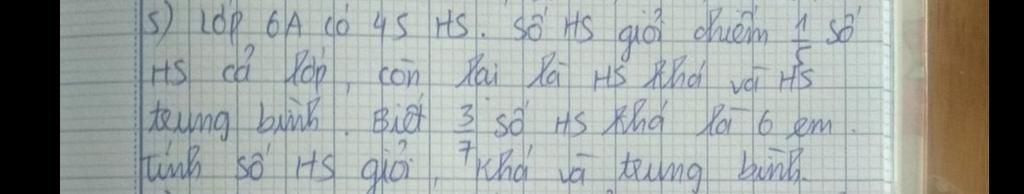 5) Lớp 6A có 45 HS. Số HS giỏi chiếm 1/5 số
HS cả lớp, còn lại là HS khá và HS
trung bình. Biết 3/7 số HS khá là 6 em.
Tính số HS giỏi, khá và trung bình.